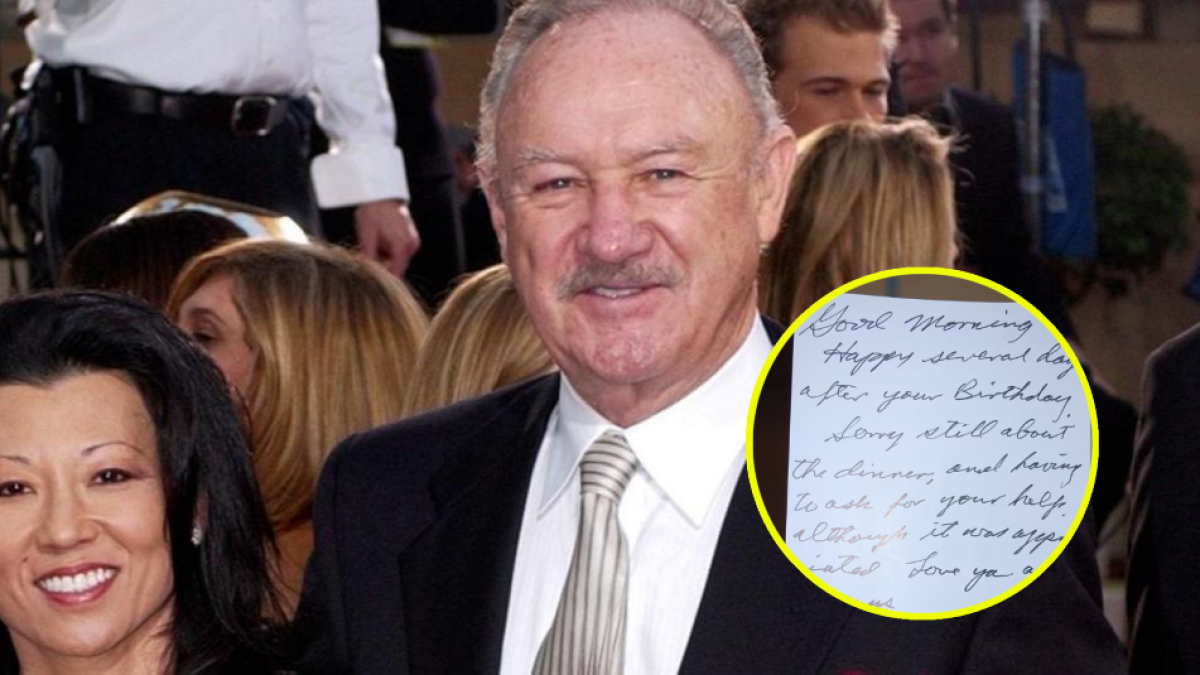 Good Morning
Happy several day
after your Birthday
Sorry still about
the dinner, and having
to ask for your help
although it was appr
iated Love ya a
us